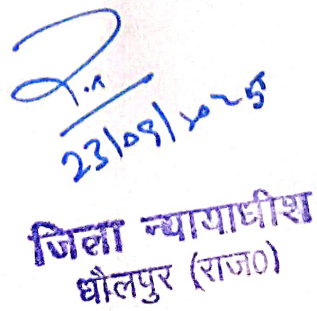 23/08/2025
जिला न्यायाधीश
धौलपुर (राज0)